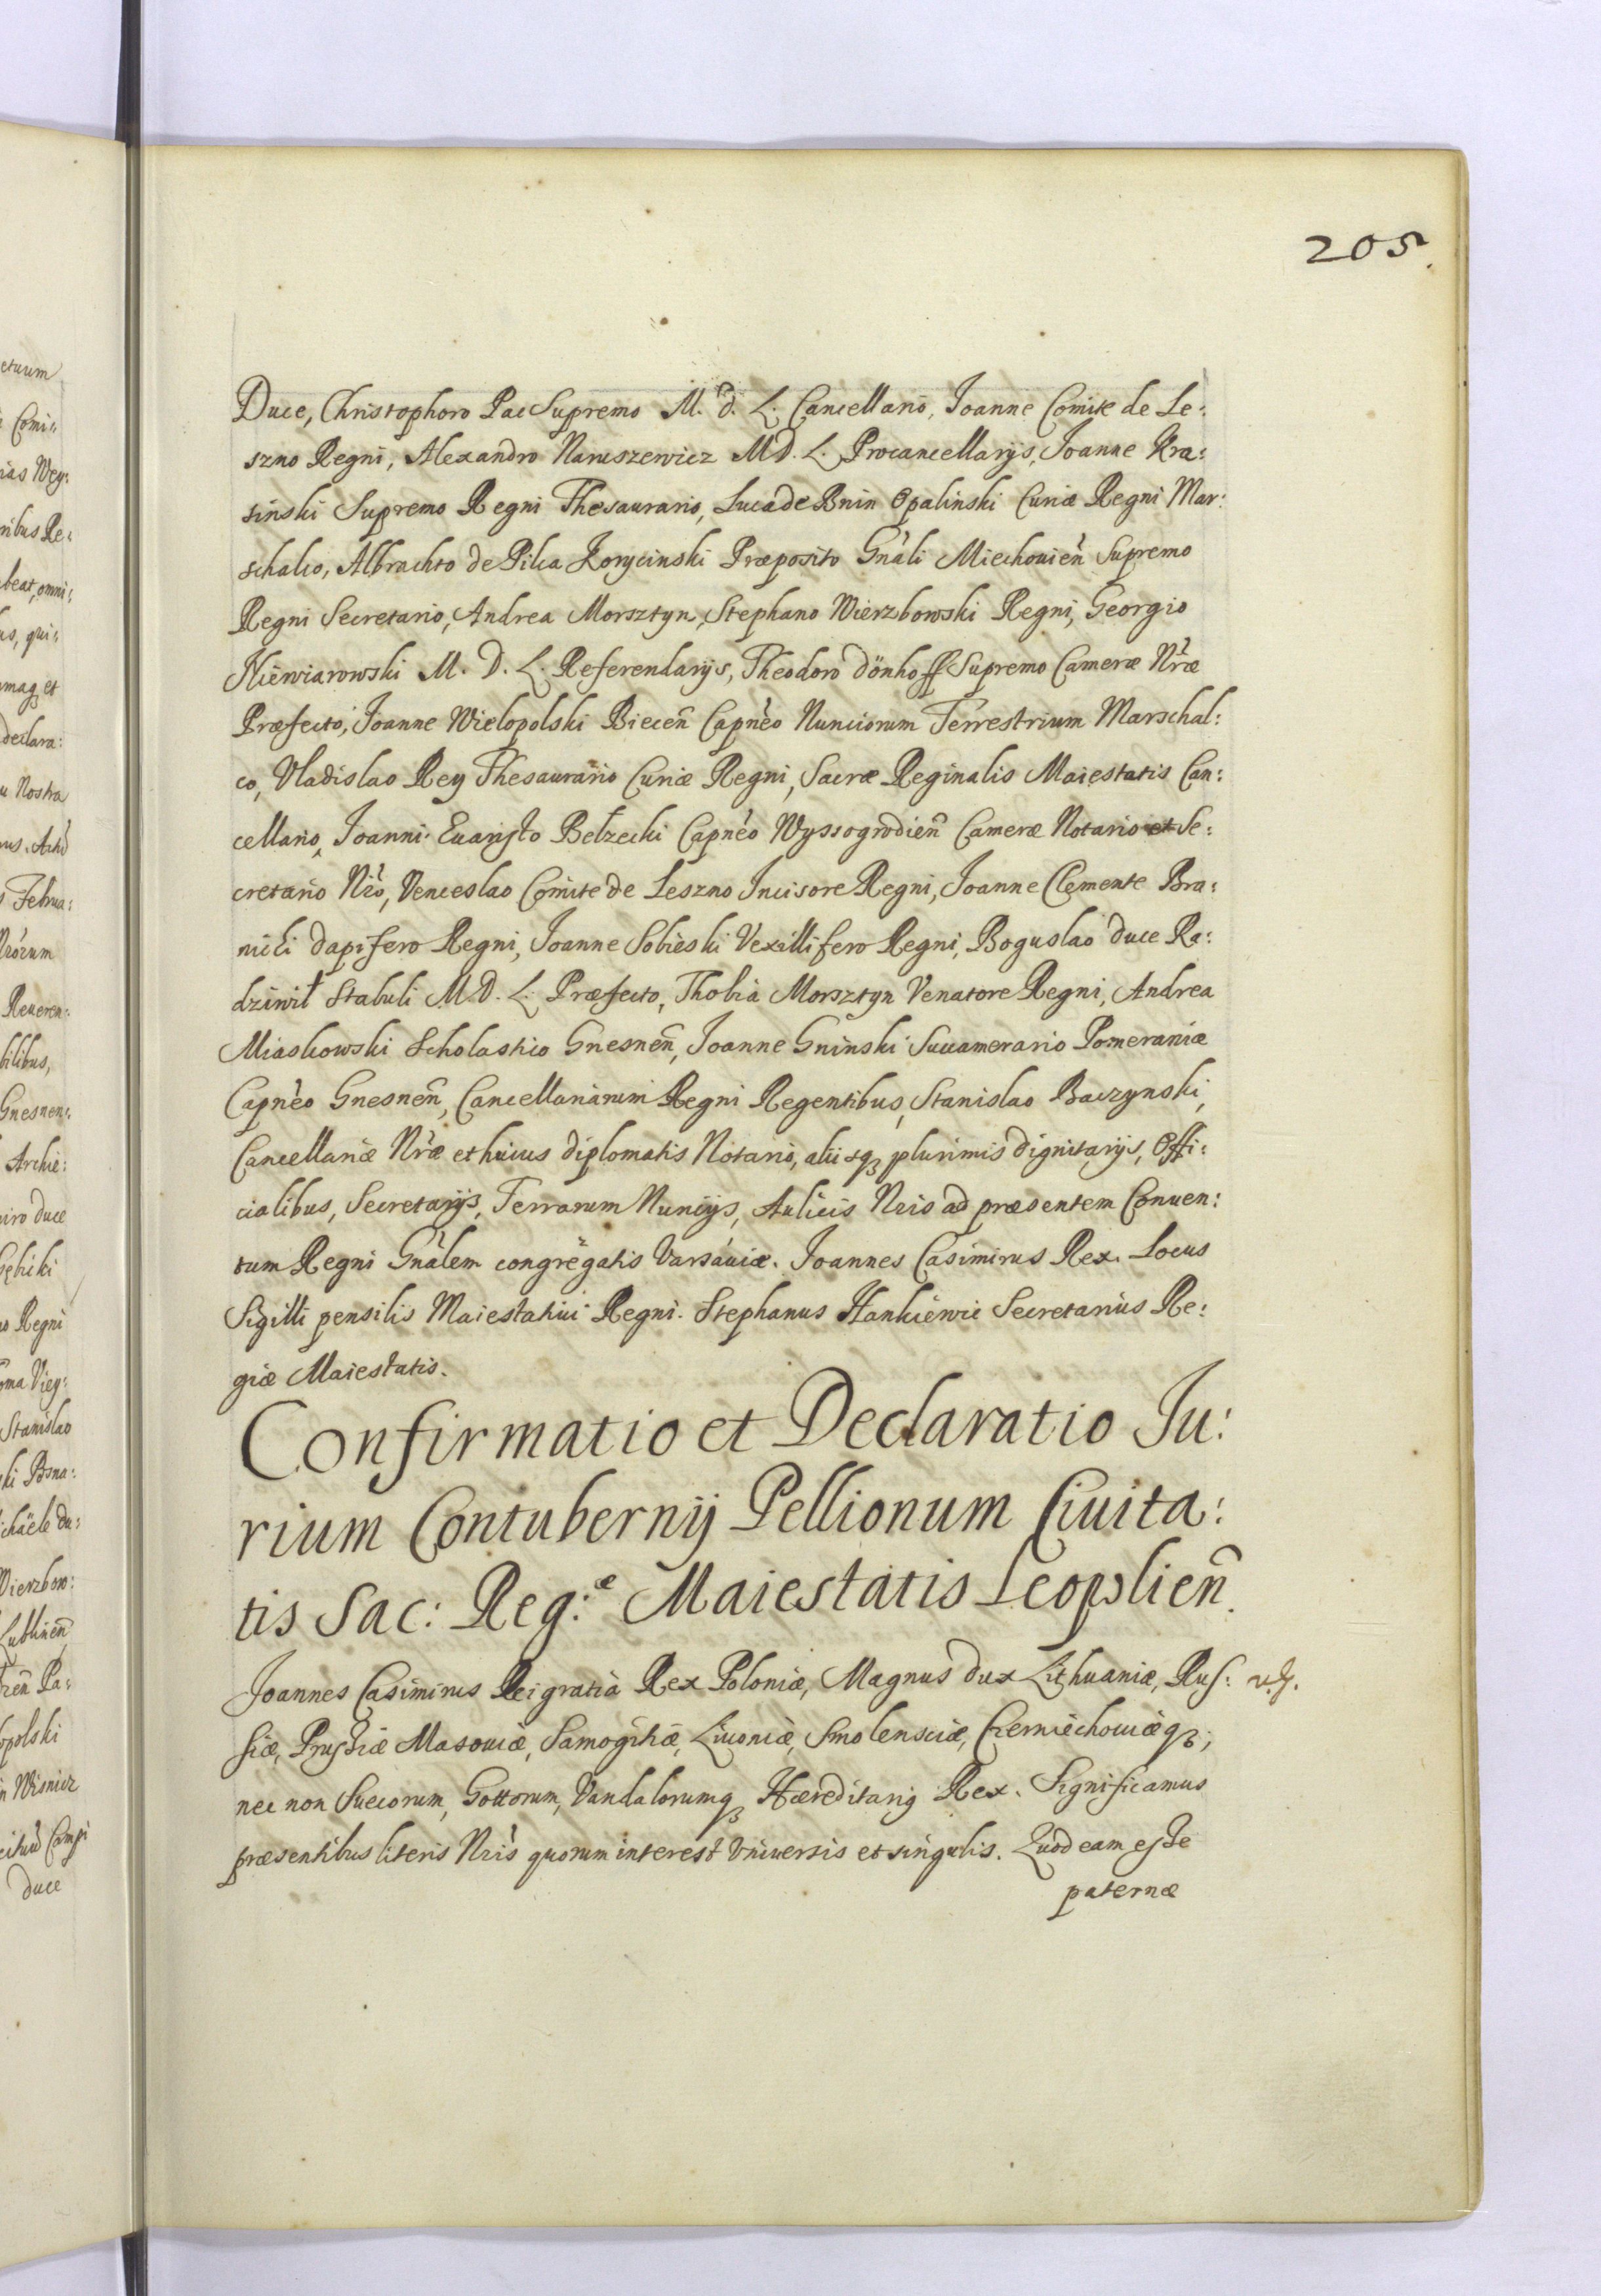 205.
Duce, Christophoro Pac Supremo M. D. L. Cancellario, Joanne Comite de Le:
szno Regni, Alexandro Naruszewicz M D. L. Procancellarijs, Joanne Kra:
sinski Supremo Regni Thesaurario, Luca de Bnin Opalinski Curiæ Regni Mar:
schalco, Albrachto de Pilca Korycinski Præposito Gnáli Miechouien̄ Supremo
Regni Secretario, Andrea Morsztyn, Stephano Wierzbowski Regni, Georgio
Niewiarowski M. D. L. Referendarijs, Theodoro Dönhoff Supremo Cameræ Nr̃æ
Præfecto, Joanne Wielopolski Biecen̄ Capnèo Nunciorum Terrestrium Marschal:
co, Vladislao Rey Thesaurario Curiæ Regni, Sacræ Reginalis Maiestatis Can:
cellario, Joanni Euaristo Bełzecki Capnèo Wyssogrodien̄ Cameræ Notario et Se:
cretario Nr̃o, Venceslao Comite de Leszno Incisore Regni, Joanne Clemente Bra:
nicki Dapifero Regni, Joanne Sobieski Vexillifero Regni, Boguslao Duce Ra:
dziwił Stabuli M. D. L. Præfecto, Thobia Morsztyn Venatore Regni, Andrea
Miaskowski Scholastico Gnesnen̄, Joanne Gninski Succamerario Pomeraniæ
Capnèo Gnesnen̄, Cancellariarum Regni Regentibus, Stanislao Baczynski,
Cancellariæ Nr̃æ et huius diplomatis Notario, alijsqȝ plurimis dignitarijs, Offi:
cialibus, Secretarijs, Terrarum Nuncijs, Aulicis Nris ad præsentem Conuen:
tum Regni Gnálem congregatis Varsauiæ. Joannes Casimirus Rex. Locus
Sigilli pensilis Maiestatiui Regni. Stephanus Hankiewic Secretarius Re:
giæ Maiestatis.
Confirmatio et Declaratio Ju:
rium Contubernij Pellionum Ciuita:
tis Sac: Reg:ᵉ Maiestatis Leopolien̄.
Joannes Casimirus Dei gratia Rex Poloniæ, Magnus Dux Lithuaniæ, Rus:
siæ, Prussiæ Masouiæ, Samogitiæ, Liuoniæ, Smolensciæ, Czerniechouiæqȝ;
nec non Suecorum, Gottorum, Vandalorumqȝ Hæreditarig Rex. Significamus
præsentibus literis Nris quorum interest Vniuersis et singulis. Quod eam esse
paternæ